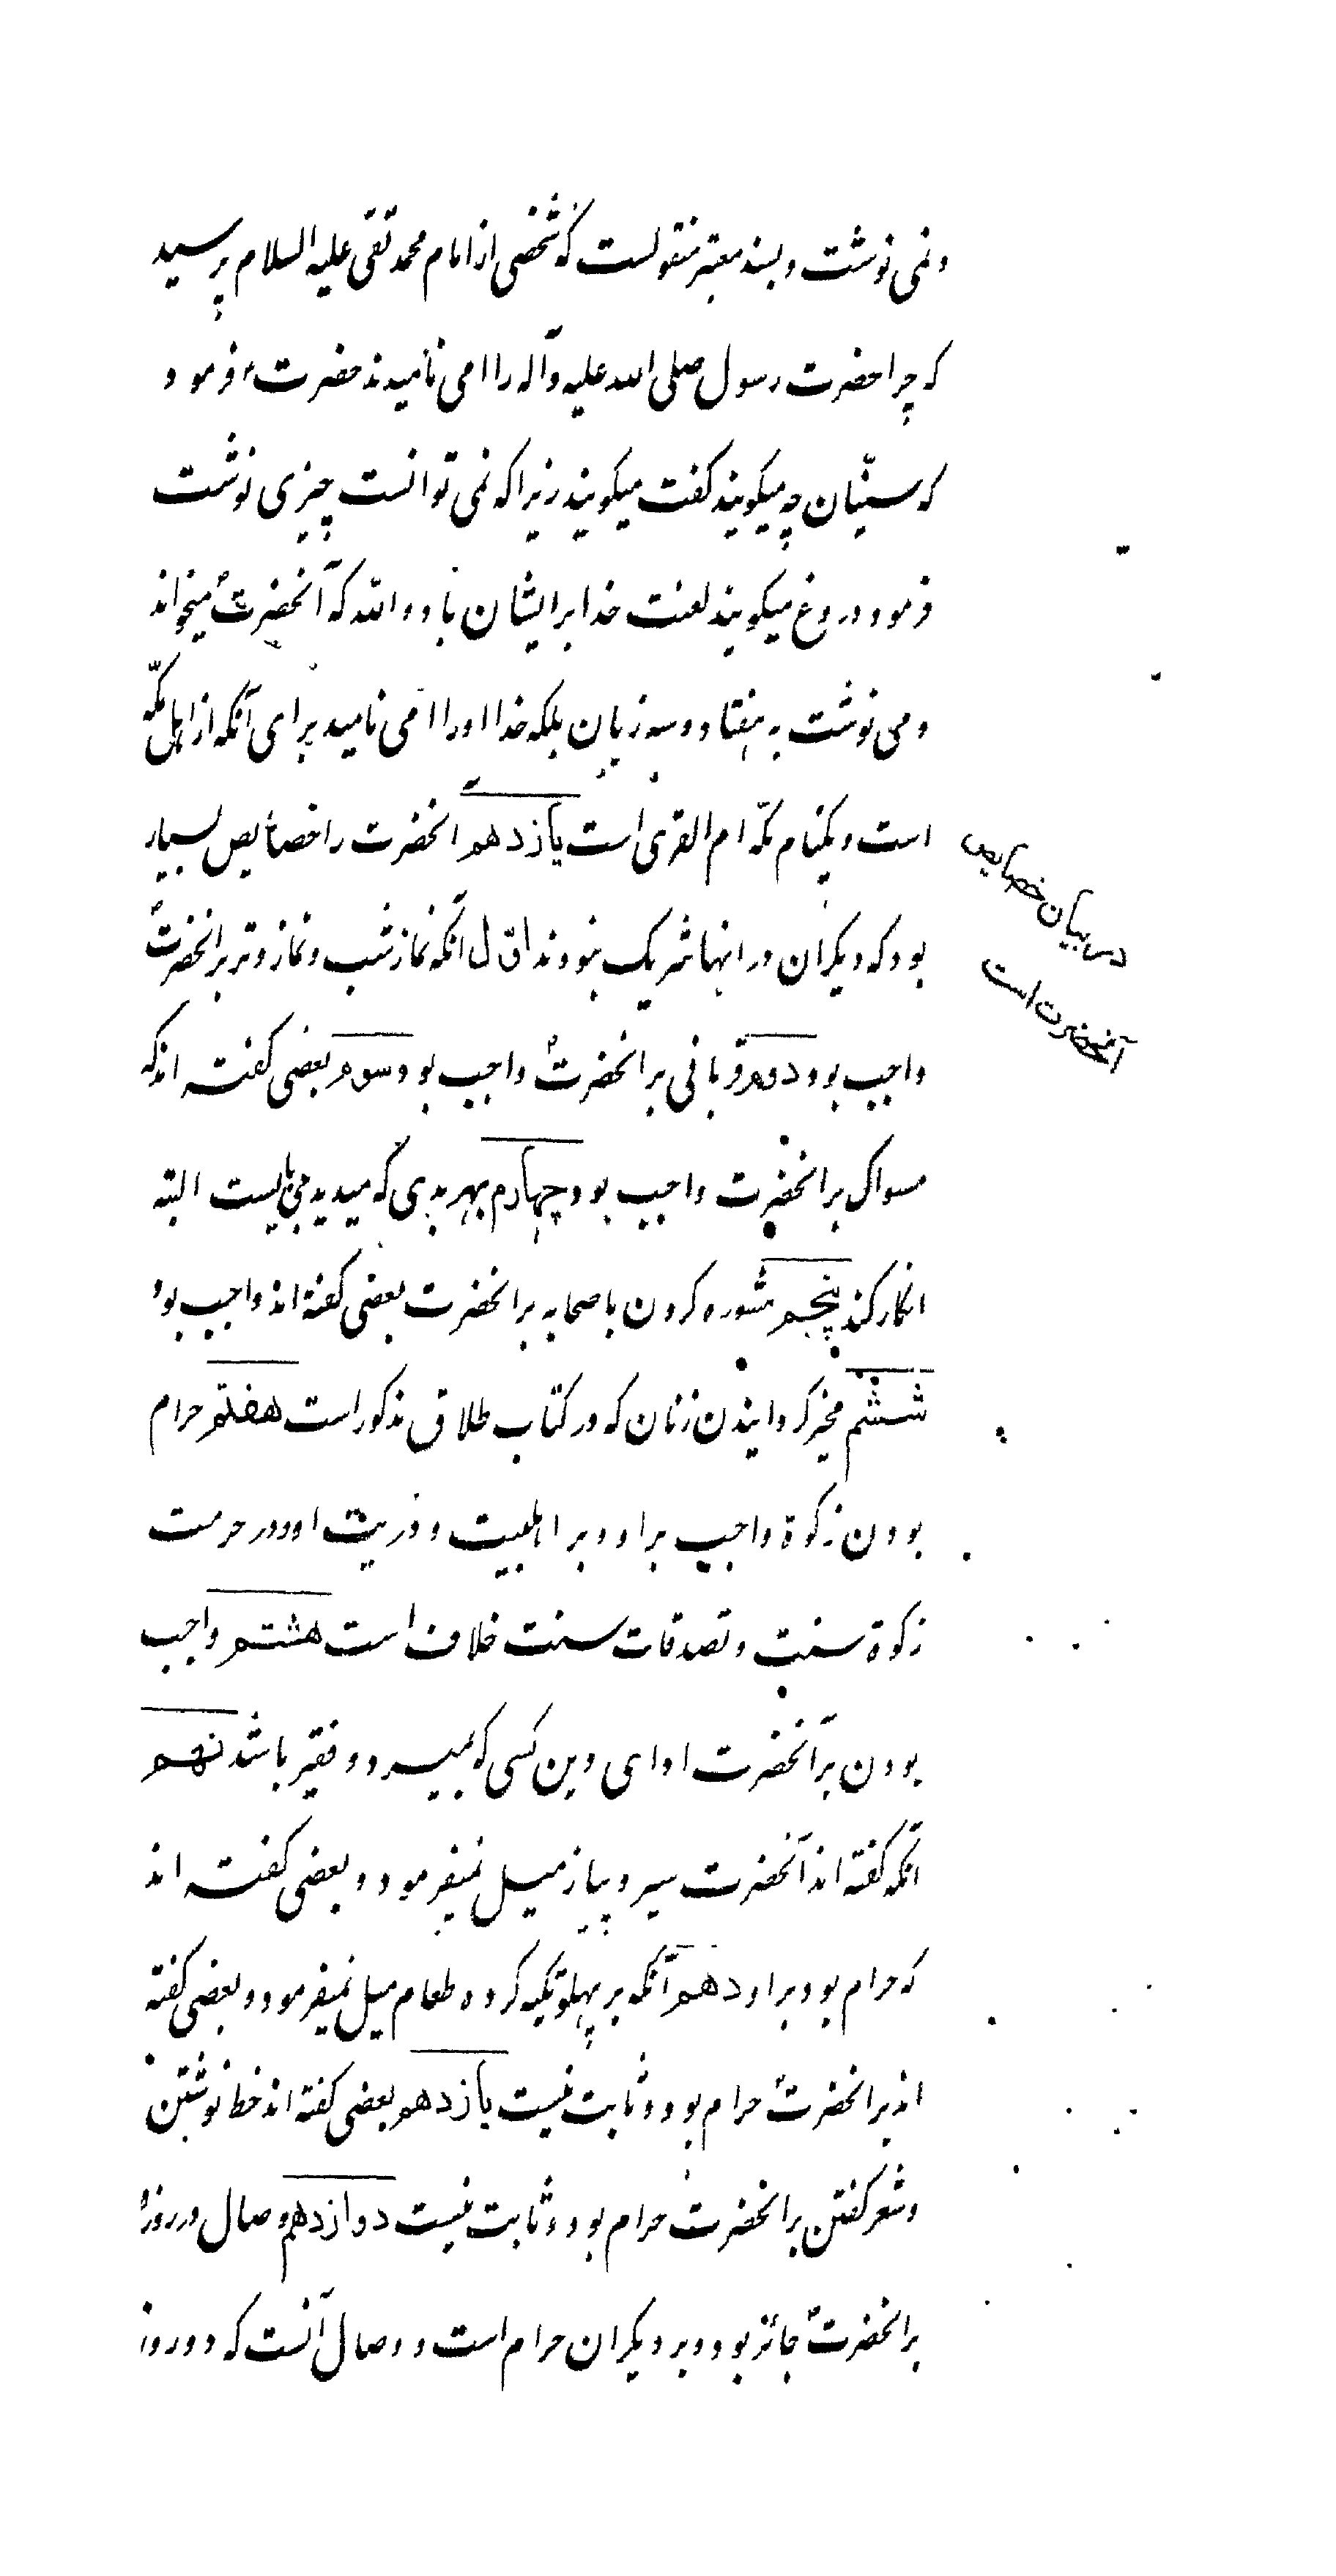 و نمی نوشت و بسند معتبر منقولست که شخصی از امام محمد تقی علیه السلام پرسید
که چرا حضرت رسول صلی الله علیه و آله را امی نامیدند حضرت ع فرمود
که سنّیان چه میکویند کفت میکویند زیرا که نمی توانست چیزی نوشت
فرمود دروغ میکویند لعنت خدا بر ایشان باد والله که آنحضرت میخواند
و می نوشت به هفتاد و سه زبان بلکه خدا او را امی نامید برای آنکه از اهل مکّه
است و یکنام مکّه ام القری است یازدهم انحضرت را خصایص بسیار
در بیان خصایص
آنحضرت است
بود که دیکران در اینها شریک نبودند اوّل آنکه نماز شب و نماز وتر بر انحضرت
واجب بود دوم قربانی بر انحضرت واجب بود سوم بعضی کفته اند که
مسواک بر انحضرت واجب بود چهارم بهر بدی که میدید می بایست البته
انکار کند پنجم مشوره کردن با صحابه بر انحضرت بعضی کفته اند واجب بود
ششم مخیر کردانیدن زنان که در کتاب طلاق مذکور است هفتم حرام
بودن زکوة واجب بر او و بر اهلبیت و ذریت او و در حرمت
زکوة سنت و تصدقات سنت خلاف است هشتم واجب
بودن بر آنحضرت ادای دین کسی که بمیرد و فقیر باشد نهم
آنکه کفته اند آنحضرت سیر و پیاز میل نمیفرمود و بعضی کفته اند
که حرام بود بر او دهم آنکه بر پهلو تکیه کرده طعام میل نمیفرمود و بعضی کفته
اند بر انحضرت حرام بود و ثابت نیست یازدهم بعضی کفته اند خط نوشتن
و شعر کفتن بر انحضرت حرام بود و ثابت نیست دوازدهم وصال در روزه
بر انحضرت جائز بود و بر دیکران حرام است و وصال آنست که دو روز